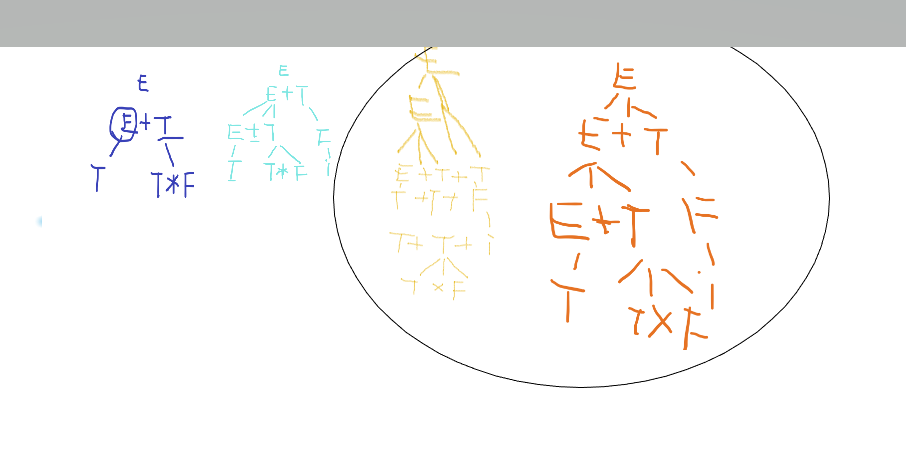 E
E+T
T T*F
E
E+T
E+T F
T T*F i
E
E
E+T+T
T+T+F
T+T+i
T×F
E
E+T
E+T F
T T×F i